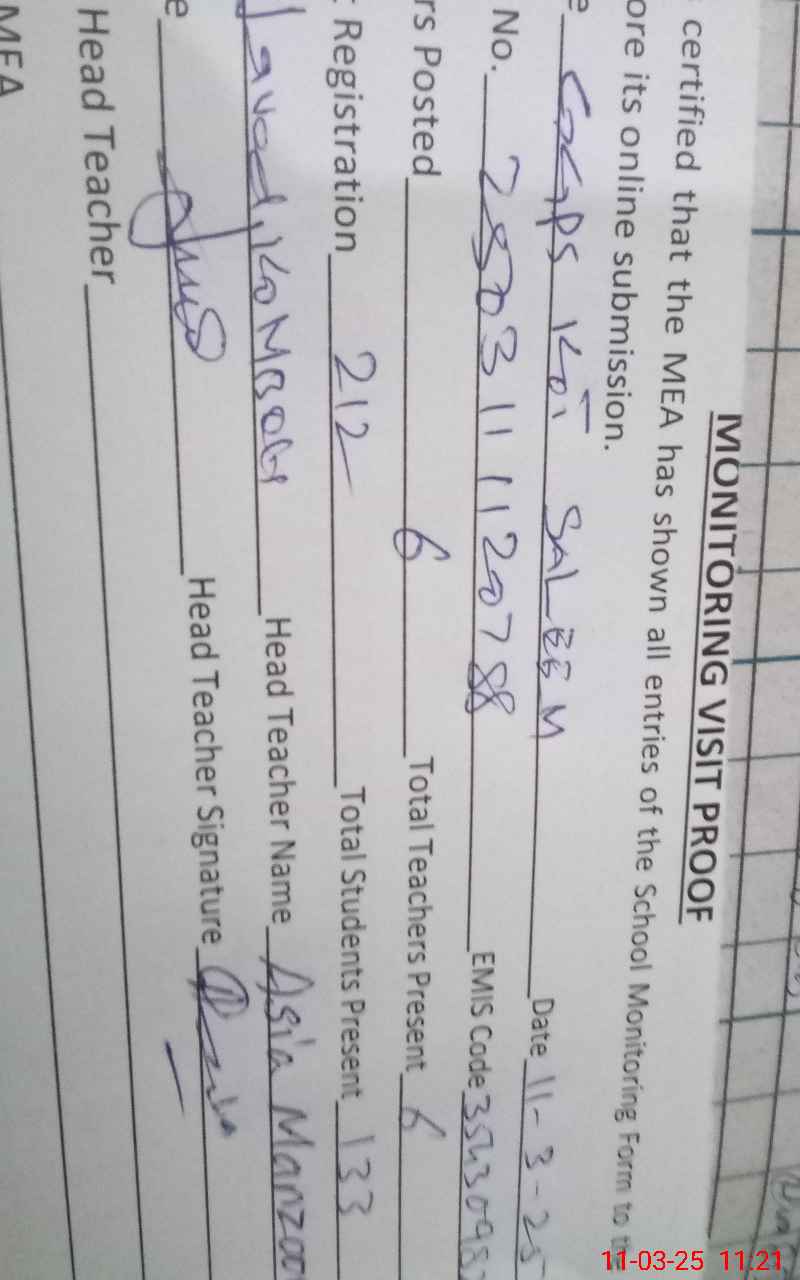 MONITORING VISIT PROOF
certified that the MEA has shown all entries of the School Monitoring Form to the
ore its online submission.
e GGPS KOT SALEEM Date 11-3-25
No. 2803111120788 EMIS Code 3543098
rs Posted 6 Total Teachers Present 6
Registration 212 Total Students Present 133
Javed Head Teacher Name Asia Manzoor
e Head Teacher Signature
Head Teacher
MEA
11-03-25 11:21